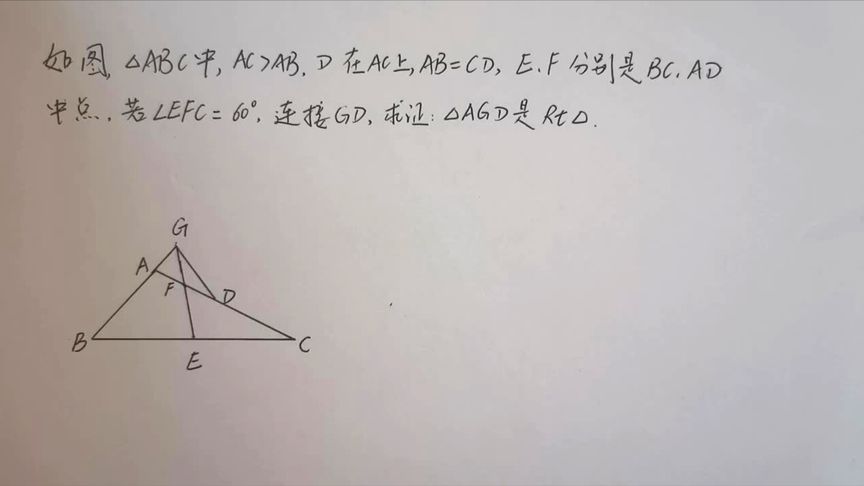 如图,△ABC中,AC>AB,D在AC上,AB=CD,E、F分别是BC、AD
中点,若∠EFC=60°,连接GD,求证:△AGD是Rt△.
G
A
F
D
B
E
C